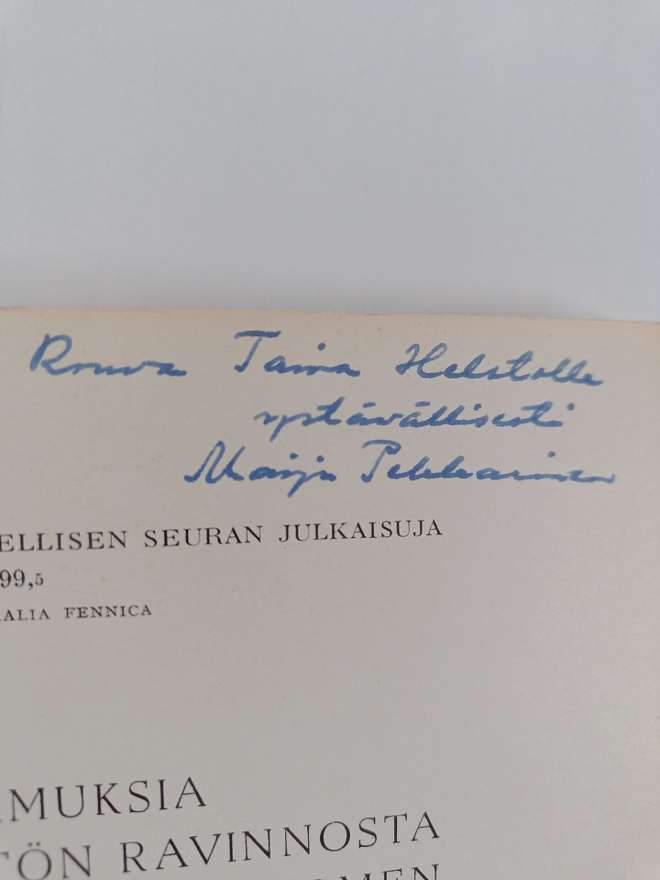 Rouva Taina Helstolle
ystävällisesti
Maija Pekkarinen
ELLISEN SEURAN JULKAISUJA
99,5
RALIA FENNICA
MUKSIA
TÖN RAVINNOSTA
OMEN